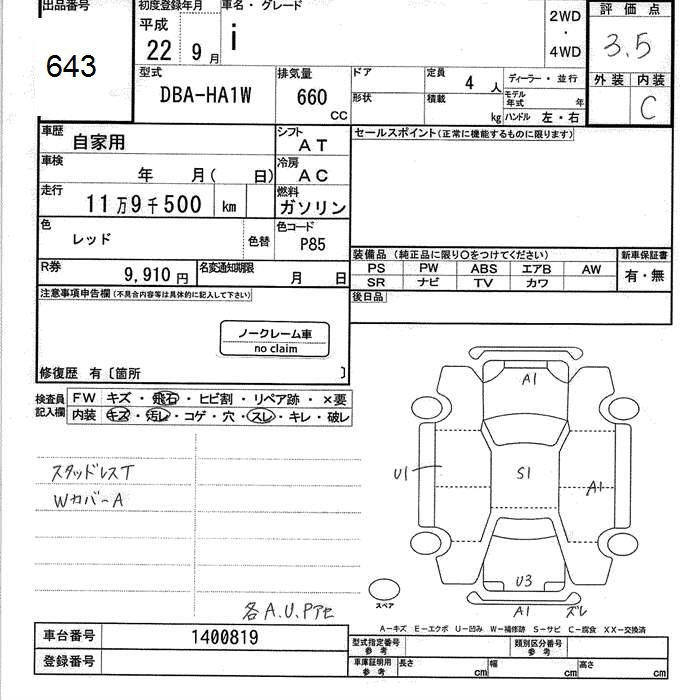 出品番号
643
初度登録年月
平成
22 9月
車名・グレード
i
2WD
・
4WD
評価点
3.5
外装 内装
C
型式
DBA-HA1W
排気量
660
CC
ドア
定員
4 人
ディーラー・並行
形状
積載
kg
モデル年式 年
ハンドル 左・右
車歴
自家用
シフト
AT
セールスポイント(正常に機能するものに限ります)
車検
年 月( 日)
冷房
AC
走行
11万9千500 km
燃料
ガソリン
色
レッド
色替
色コード
P85
装備品 (純正品に限り○をつけてください)
新車保証書
PS PW ABS エアB AW
有・無
SR ナビ TV カワ
R券
9,910円
名変通知期限
月 日
後日品
注意事項申告欄(不具合内容等は具体的に記入して下さい)
ノークレーム車
no claim
修復歴 有〔箇所 〕
検査員
記入欄
FW キズ・飛石・ヒビ割・リペア跡・×要
内装 キズ・汚レ・コゲ・穴・スレ・キレ・破レ
スタッドレスT
Wカバ-A
各A.U.Pアセ
A1
U1
S1
A1
U3
A1 ズレ
スペア
A-キズ E-エクボ U-凹み W-補修跡 S-サビ C-腐食 XX-交換済
車台番号
1400819
登録番号
型式指定番号
参考
類別区分番号
参考
車庫証明用
参考
長さ cm
幅 cm
高さ cm